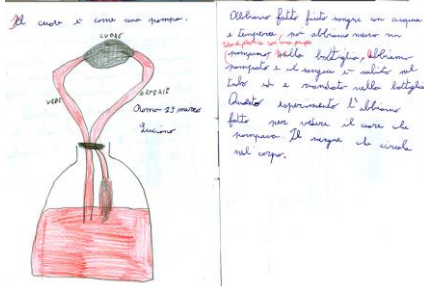 Il cuore è come una pompa.
CUORE
VENE
ARTERIE
Roma 29 marzo
Luciano
Abbiamo fatto finto sangue con acqua
e tempera, poi abbiamo messo un
tubo di plastica con una pompa
nella bottiglia, abbiamo
pompato e il sangue è salito nel
tubo ed è mandato nella bottiglia
Questo esperimento l'abbiamo
fatto per vedere il cuore che
pompava. Il sangue che circola
nel corpo.